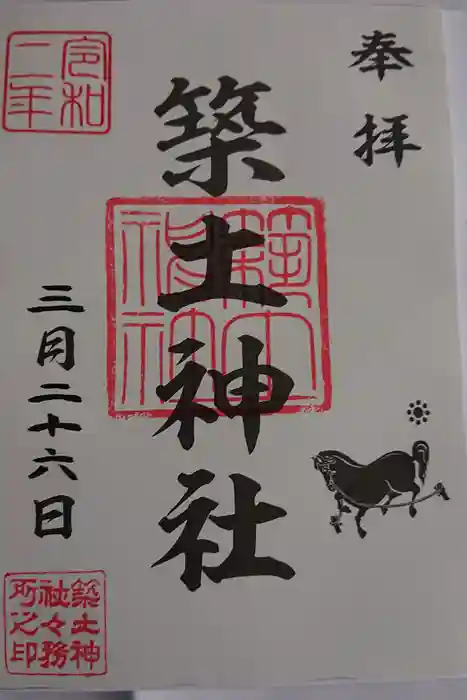 奉拝
築土神社
築土神社
令和二年
三月二十六日
築土神社々務所之印